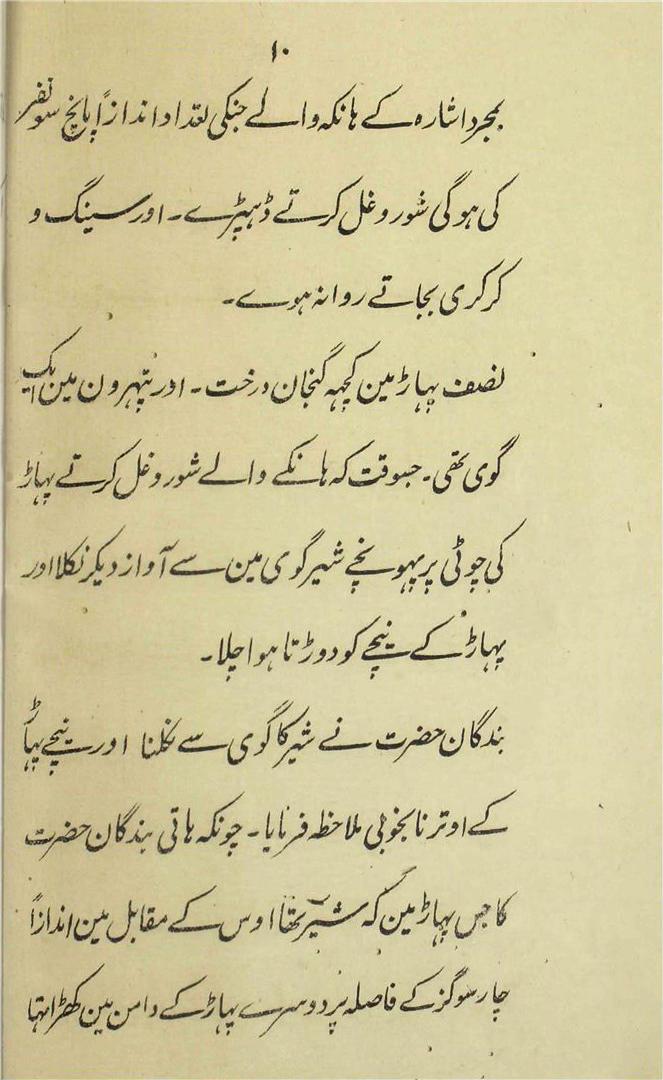 ۱۰
بمجرد اشارہ کے ہانکہ والے جنکی تعداد اندازاً پانچ سو نفر
کی ہوگی شور و غل کرتے ڈہپڑے۔ اور سینگ و
کرکری بجاتے روانہ ہوے۔
نصف پہاڑ مین کچہہ گنجان درخت۔ اور پتہرون مین ایک
گوی تھی۔ جسوقت کہ ہانکے والے شور و غل کرتے پہاڑ
کی چوٹی پر پہونچے شیر گوی مین سے آواز دیکر نکلا اور
پہاڑ کے نیچے کو دوڑتا ہوا چلا۔
بندگان حضرت نے شیر کا گوی سے نکلنا اور نیچے پہاڑ
کے اوترنا بخوبی ملاحظہ فرمایا۔ چونکہ ہاتی بندگان حضرت
کا جس پہاڑ مین کہ شیر تھا اوس کے مقابل مین اندازاً
چار سو گز کے فاصلہ پر دوسرے پہاڑ کے دامن مین کھڑا تہا